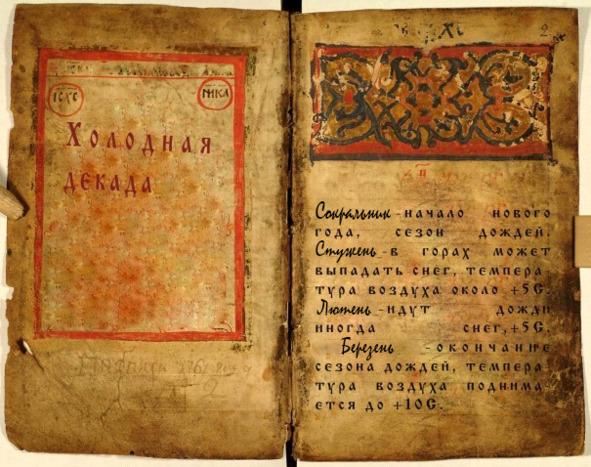 ІС ХС
НИКА
Холодная
декада
2
Сокральник -начало нового
года, сезон дождей.
Стужень -в горах может
выпадать снег, темпера-
тура воздуха около +5С.
Лютень -идут дожди
иногда снег,+5С.
Березень -окончание
сезона дождей, темпера-
тура воздуха поднима-
ется до +10С.